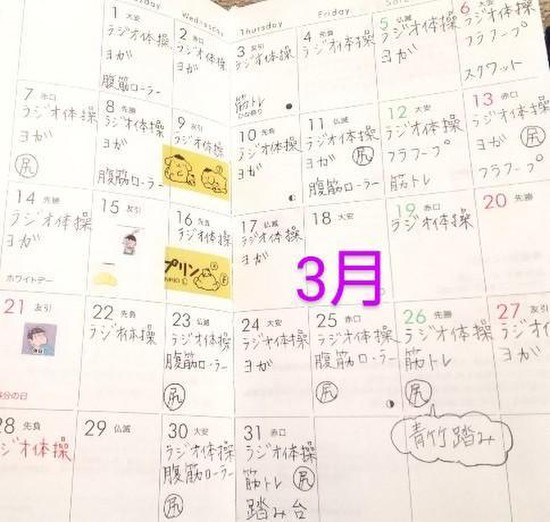 Wednesday
Thursday
Friday
1 大安
ラジオ体操
ヨガ
腹筋ローラー
2 赤口
ラジオ体操
ヨガ
3 友引
ラジオ体操
筋トレ
ひな祭り
4 先負
ラジオ体操
5 仏滅
ラジオ体操
ヨガ
6 大安
ラジオ体操
フラフープ
スクワット
7 赤口
ラジオ体操
ヨガ
尻
8 先勝
ラジオ体操
ヨガ
腹筋ローラー
9 友引
ラジオ体操
10 先負
ラジオ体操
ヨガ
11 仏滅
ラジオ体操
ヨガ 尻
腹筋ローラー
12 大安
ラジオ体操
フラフープ
筋トレ
13 赤口
ラジオ体操
ヨガ 尻
フラフープ
14 先勝
ラジオ体操
ヨガ
ホワイトデー
15 友引
16 先負
ラジオ体操
プリン
17 仏滅
ラジオ体操
ヨガ
18 大安
19 赤口
ラジオ体操
20 先勝
3月
21 友引
22 先負
ラジオ体操
23 仏滅
ラジオ体操
腹筋ローラー
尻
24 大安
ラジオ体操
ヨガ
25 赤口
ラジオ体操
腹筋ローラー
尻
26 先勝
ラジオ体操
筋トレ
尻
青竹踏み
27 友引
ラジオ体操
ヨガ
28 先負
ラジオ体操
29 仏滅
30 大安
ラジオ体操
腹筋ローラー
尻
31 赤口
ラジオ体操
筋トレ 尻
踏み台